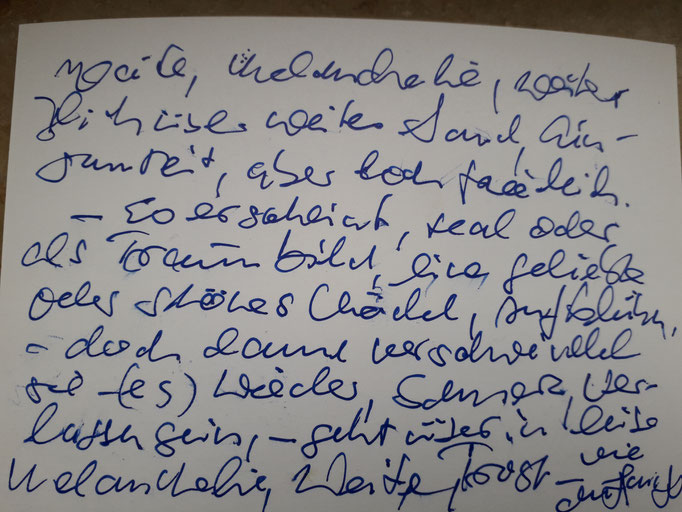 Weite, Melancholie, weiter
Blick über weites Land, Ein-
samkeit, aber doch friedlich.
– So erscheint, real oder
als Traumbild, eine geliebte
oder schönes Mädel, Aufblühen,
– doch dann verschwindet
sie (es) wieder, Schmerz, Ver-
lassensein, – geht über in leise
Melancholie, Weite, Trost – wie
anfangs